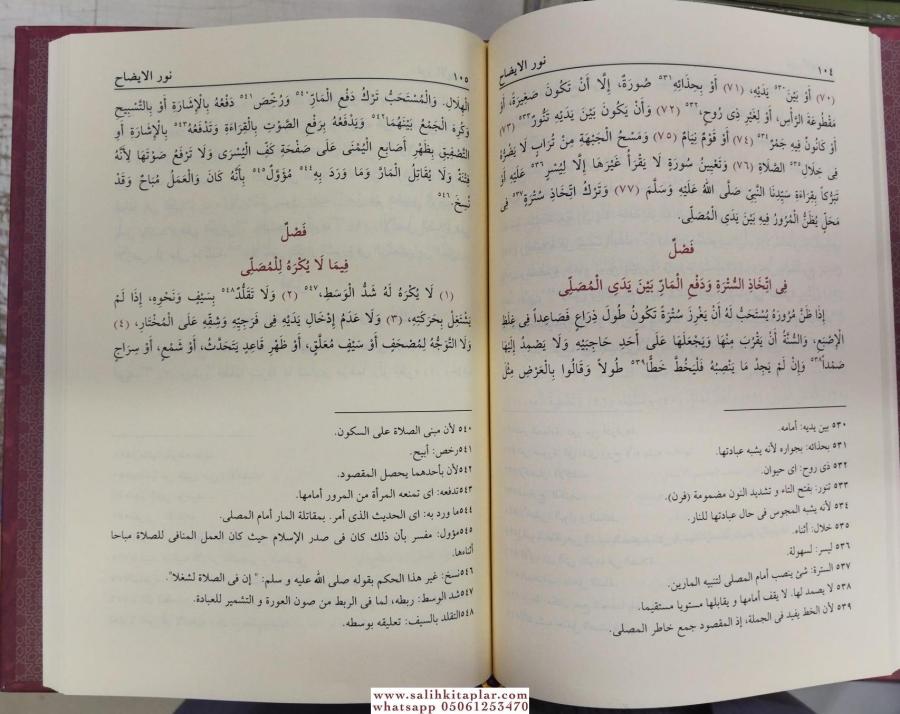 ١٠٤ نور الايضاح
(٧٠) أَوْ بَيْنَ٥٣٠ يَدَيْهِ، (٧١) أَوْ بِحِذَائِهِ٥٣١ صُورَةٌ، إِلَّا أَنْ تَكُونَ صَغِيرَةً، أَوْ
مَقْطُوعَةَ الرَّأْسِ، أَوْ لِغَيْرِ ذِى رُوحٍ،٥٣٢ (٧٢) وَأَنْ يَكُونَ بَيْنَ يَدَيْهِ تَنُّورٌ٥٣٣ (٧٣)
أَوْ كَانُونٌ فِيهِ جَمْرٌ٥٣٤ (٧٤) أَوْ قَوْمٌ نِيَامٌ (٧٥) وَمَسْحُ الْجَبْهَةِ مِنْ تُرَابٍ لَا يَضُرُّهُ
فِى خِلَالِ٥٣٥ الصَّلَاةِ (٧٦) وَتَعْيِينُ سُورَةٍ لَا يَقْرَأُ غَيْرَهَا إِلَّا لِيُسْرٍ٥٣٦ عَلَيْهِ أَوْ
تَبَرُّكاً بِقِرَاءَةِ سَيِّدِنَا النَّبِيِّ صَلَّى اللهُ عَلَيْهِ وَسَلَّمَ (٧٧) وَتَرْكُ اتِّخَاذِ سُتْرَةٍ٥٣٧ فِى
مَحَلٍّ يُظَنُّ الْمُرُورُ فِيهِ بَيْنَ يَدَىِ الْمُصَلِّى.
فَصْلٌ
فِى اتِّخَاذِ السُّتْرَةِ وَدَفْعِ الْمَارِّ بَيْنَ يَدَىِ الْمُصَلِّى
إِذَا ظَنَّ مُرُورَهُ يُسْتَحَبُّ لَهُ أَنْ يَغْرِزَ سُتْرَةً تَكُونُ طُولَ ذِرَاعٍ فَصَاعِداً فِى غِلَظِ
الْإِصْبَعِ، وَالسُّنَّةُ أَنْ يَقْرُبَ مِنْهَا وَيَجْعَلَهَا عَلَى أَحَدِ حَاجِبَيْهِ وَلَا يَصْمِدُ إِلَيْهَا
صَمْداً٥٣٨ وَإِنْ لَمْ يَجِدْ مَا يَنْصِبُهُ فَلْيَخُطَّ خَطًّا٥٣٩ طُولاً وَقَالُوا بِالْعَرْضِ مِثْلَ
٥٣٠ بين يديه: أمامه.
٥٣١ بحذائه: بجواره لأنه يشبه عبادتها.
٥٣٢ ذى روح: اى حيوان.
٥٣٣ تنور: بفتح التاء و تشديد النون مضمومة (فرن).
٥٣٤ لأنه يشبه المجوس فى حال عبادتها للنار.
٥٣٥ خلال: أثناء.
٥٣٦ ليسر: لسهولة.
٥٣٧ السترة: شئ ينصب أمام المصلى لتنبيه المارين.
٥٣٨ لا يصمد لها. لا يقف أمامها و يقابلها مستويا مستقيما.
٥٣٩ لأن الخط يفيد فى الجملة، إذ المقصود جمع خاطر المصلى.
نور الايضاح ١٠٥
الْهِلَالِ. وَالْمُسْتَحَبُّ تَرْكُ دَفْعِ الْمَارِّ٥٤٠ وَرُخِّصَ٥٤١ دَفْعُهُ بِالْإِشَارَةِ أَوْ بِالتَّسْبِيحِ
وَكُرِهَ الْجَمْعُ بَيْنَهُمَا٥٤٢ وَيَدْفَعُهُ بِرَفْعِ الصَّوْتِ بِالْقِرَاءَةِ وَتَدْفَعُهُ٥٤٣ بِالْإِشَارَةِ أَوِ
التَّصْفِيقِ بِظَهْرِ أَصَابِعِ الْيُمْنَى عَلَى صَفْحَةِ كَفِّ الْيُسْرَى وَلَا تَرْفَعُ صَوْتَهَا لِأَنَّهُ
فِتْنَةٌ وَلَا يُقَاتِلُ الْمَارَّ وَمَا وَرَدَ بِهِ٥٤٤ مُؤَوَّلٌ٥٤٥ بِأَنَّهُ كَانَ وَالْعَمَلُ مُبَاحٌ وَقَدْ
نُسِخَ.٥٤٦
فَصْلٌ
فِيمَا لَا يُكْرَهُ لِلْمُصَلِّى
(١) لَا يُكْرَهُ لَهُ شَدُّ الْوَسَطِ،٥٤٧ (٢) وَلَا تَقَلُّدٌ٥٤٨ بِسَيْفٍ وَنَحْوِهِ، إِذَا لَمْ
يَشْتَغِلْ بِحَرَكَتِهِ، (٣) وَلَا عَدَمُ إِدْخَالِ يَدَيْهِ فِى فَرَجِيِّهِ وَشِقِّهِ عَلَى الْمُخْتَارِ، (٤)
وَلَا التَّوَجُّهُ لِمُصْحَفٍ أَوْ سَيْفٍ مُعَلَّقٍ، أَوْ ظَهْرِ قَاعِدٍ يَتَحَدَّثُ، أَوْ شَمْعٍ، أَوْ سِرَاجٍ
٥٤٠ لأن مبنى الصلاة على السكون.
٥٤١رخص: أبيح.
٥٤٢لأن بأحدهما يحصل المقصود.
٥٤٣تدفعه: اى تمنعه المرأة من المرور أمامها.
٥٤٤ما ورد به: اى الحديث الذى أمر. بمقاتلة المار أمام المصلى.
٥٤٥مؤول: مفسر بأن ذلك كان فى صدر الإسلام حيث كان العمل المنافى للصلاة مباحا
أثناءها.
٥٤٦نسخ: غير هذا الحكم بقوله صلى الله عليه و سلم: " إن فى الصلاة لشغلا".
٥٤٧شد الوسط: ربطه، لما فى الربط من صون العورة و التشمير للعبادة.
٥٤٨التقلد بالسيف: تعليقه بوسطه.
www.salihkitaplar.com
whatsapp 05061253470